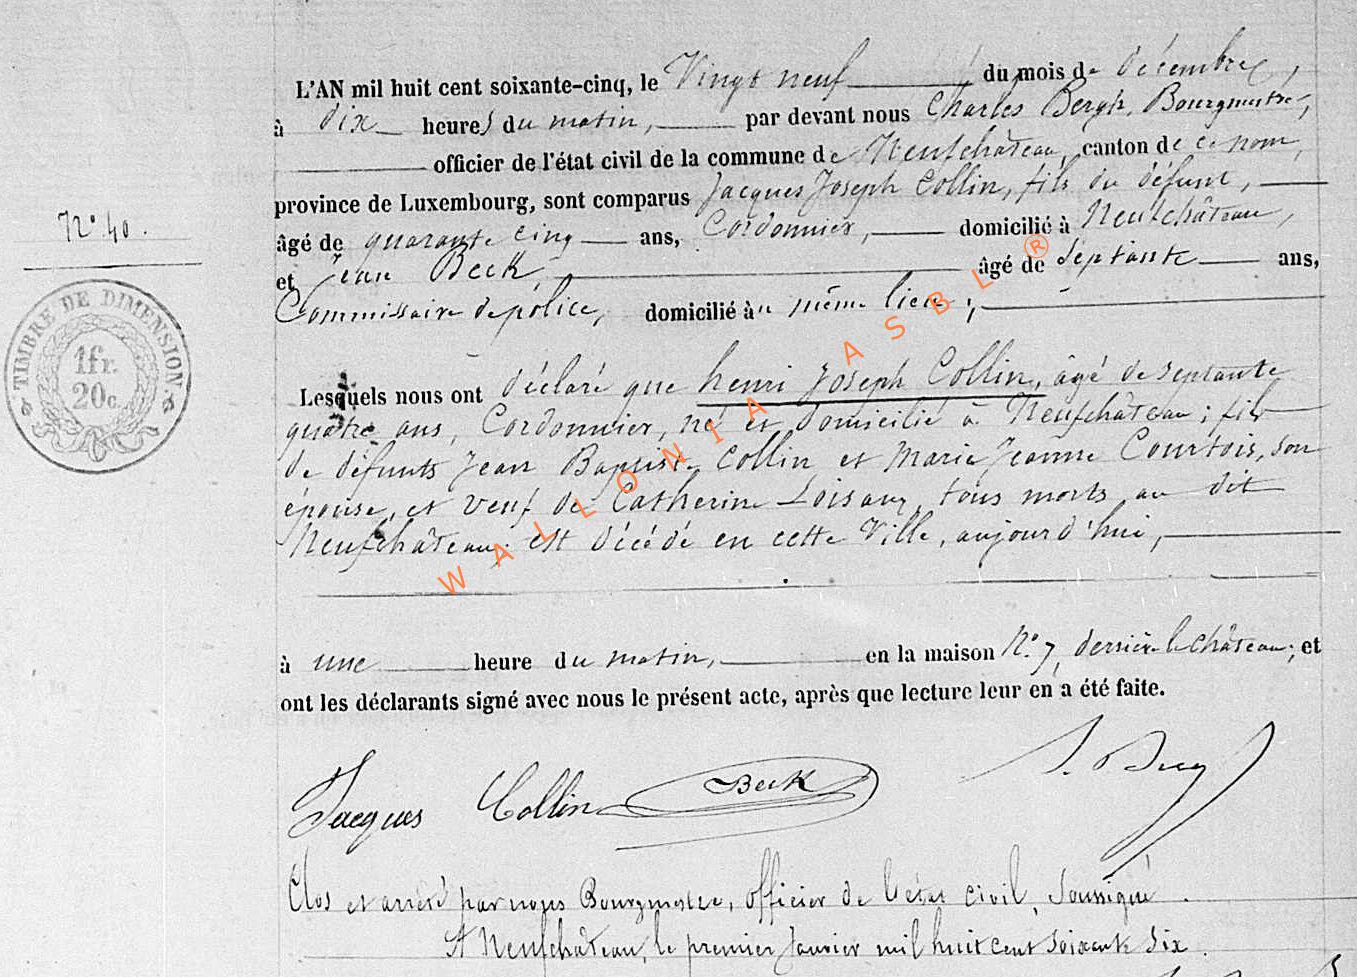 L'AN mil huit cent soixante-cinq, le Vingt neuf du mois de décembre,
à dix heures du matin, par devant nous Charles Bergh, Bourgmestre,
officier de l'état civil de la commune de Neufchâteau, canton de ce nom,
province de Luxembourg, sont comparus Jacques Joseph Collin, fils du défunt,
N° 40.
âgé de quarante cinq ans, Cordonnier, domicilié à Neufchâteau,
et Jean Beck, âgé de septante ans,
Commissaire de police, domicilié au même lieu;
TIMBRE DE DIMENSION
1fr.
20c.
Lesquels nous ont déclaré que henri Joseph Collin, âgé de septante
quatre ans, Cordonnier, né et domicilié à Neufchâteau; fils
de défunts Jean Baptiste Collin et Marie Jeanne Courtois, son
épouse, et veuf de Catherine Loisaux, tous morts au dit
Neufchâteau; est décédé en cette Ville, aujourd'hui,
WALLONIA ASBL ®
à une heure du matin, en la maison N° 7, derrière le château; et
ont les déclarants signé avec nous le présent acte, après que lecture leur en a été faite.
Jacques Collin Beck
Clos et arrêté par nous Bourgmestre, officier de l'état civil, soussigné
A Neufchâteau, le premier Janvier mil huit cent soixante six.